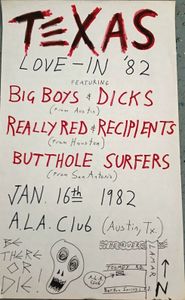 TEXAS
LOVE-IN '82
FEATURING
BIG BOYS & DICKS
(from Austin)
REALLY RED & RECIPIENTS
(from Houston)
BUTTHOLE SURFERS
(From San Antonio)
JAN. 16th 1982
A.L.A. CLUB (Austin, Tx.)
BE THERE OR DIE!
LAMAR
A.L.A. CLUB
N